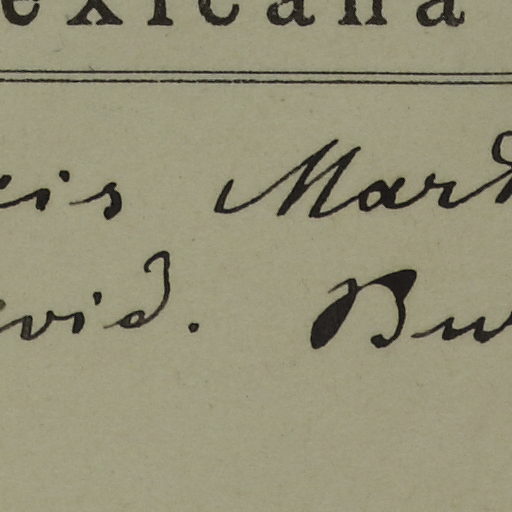 exicana
is Mark
vid. Bu